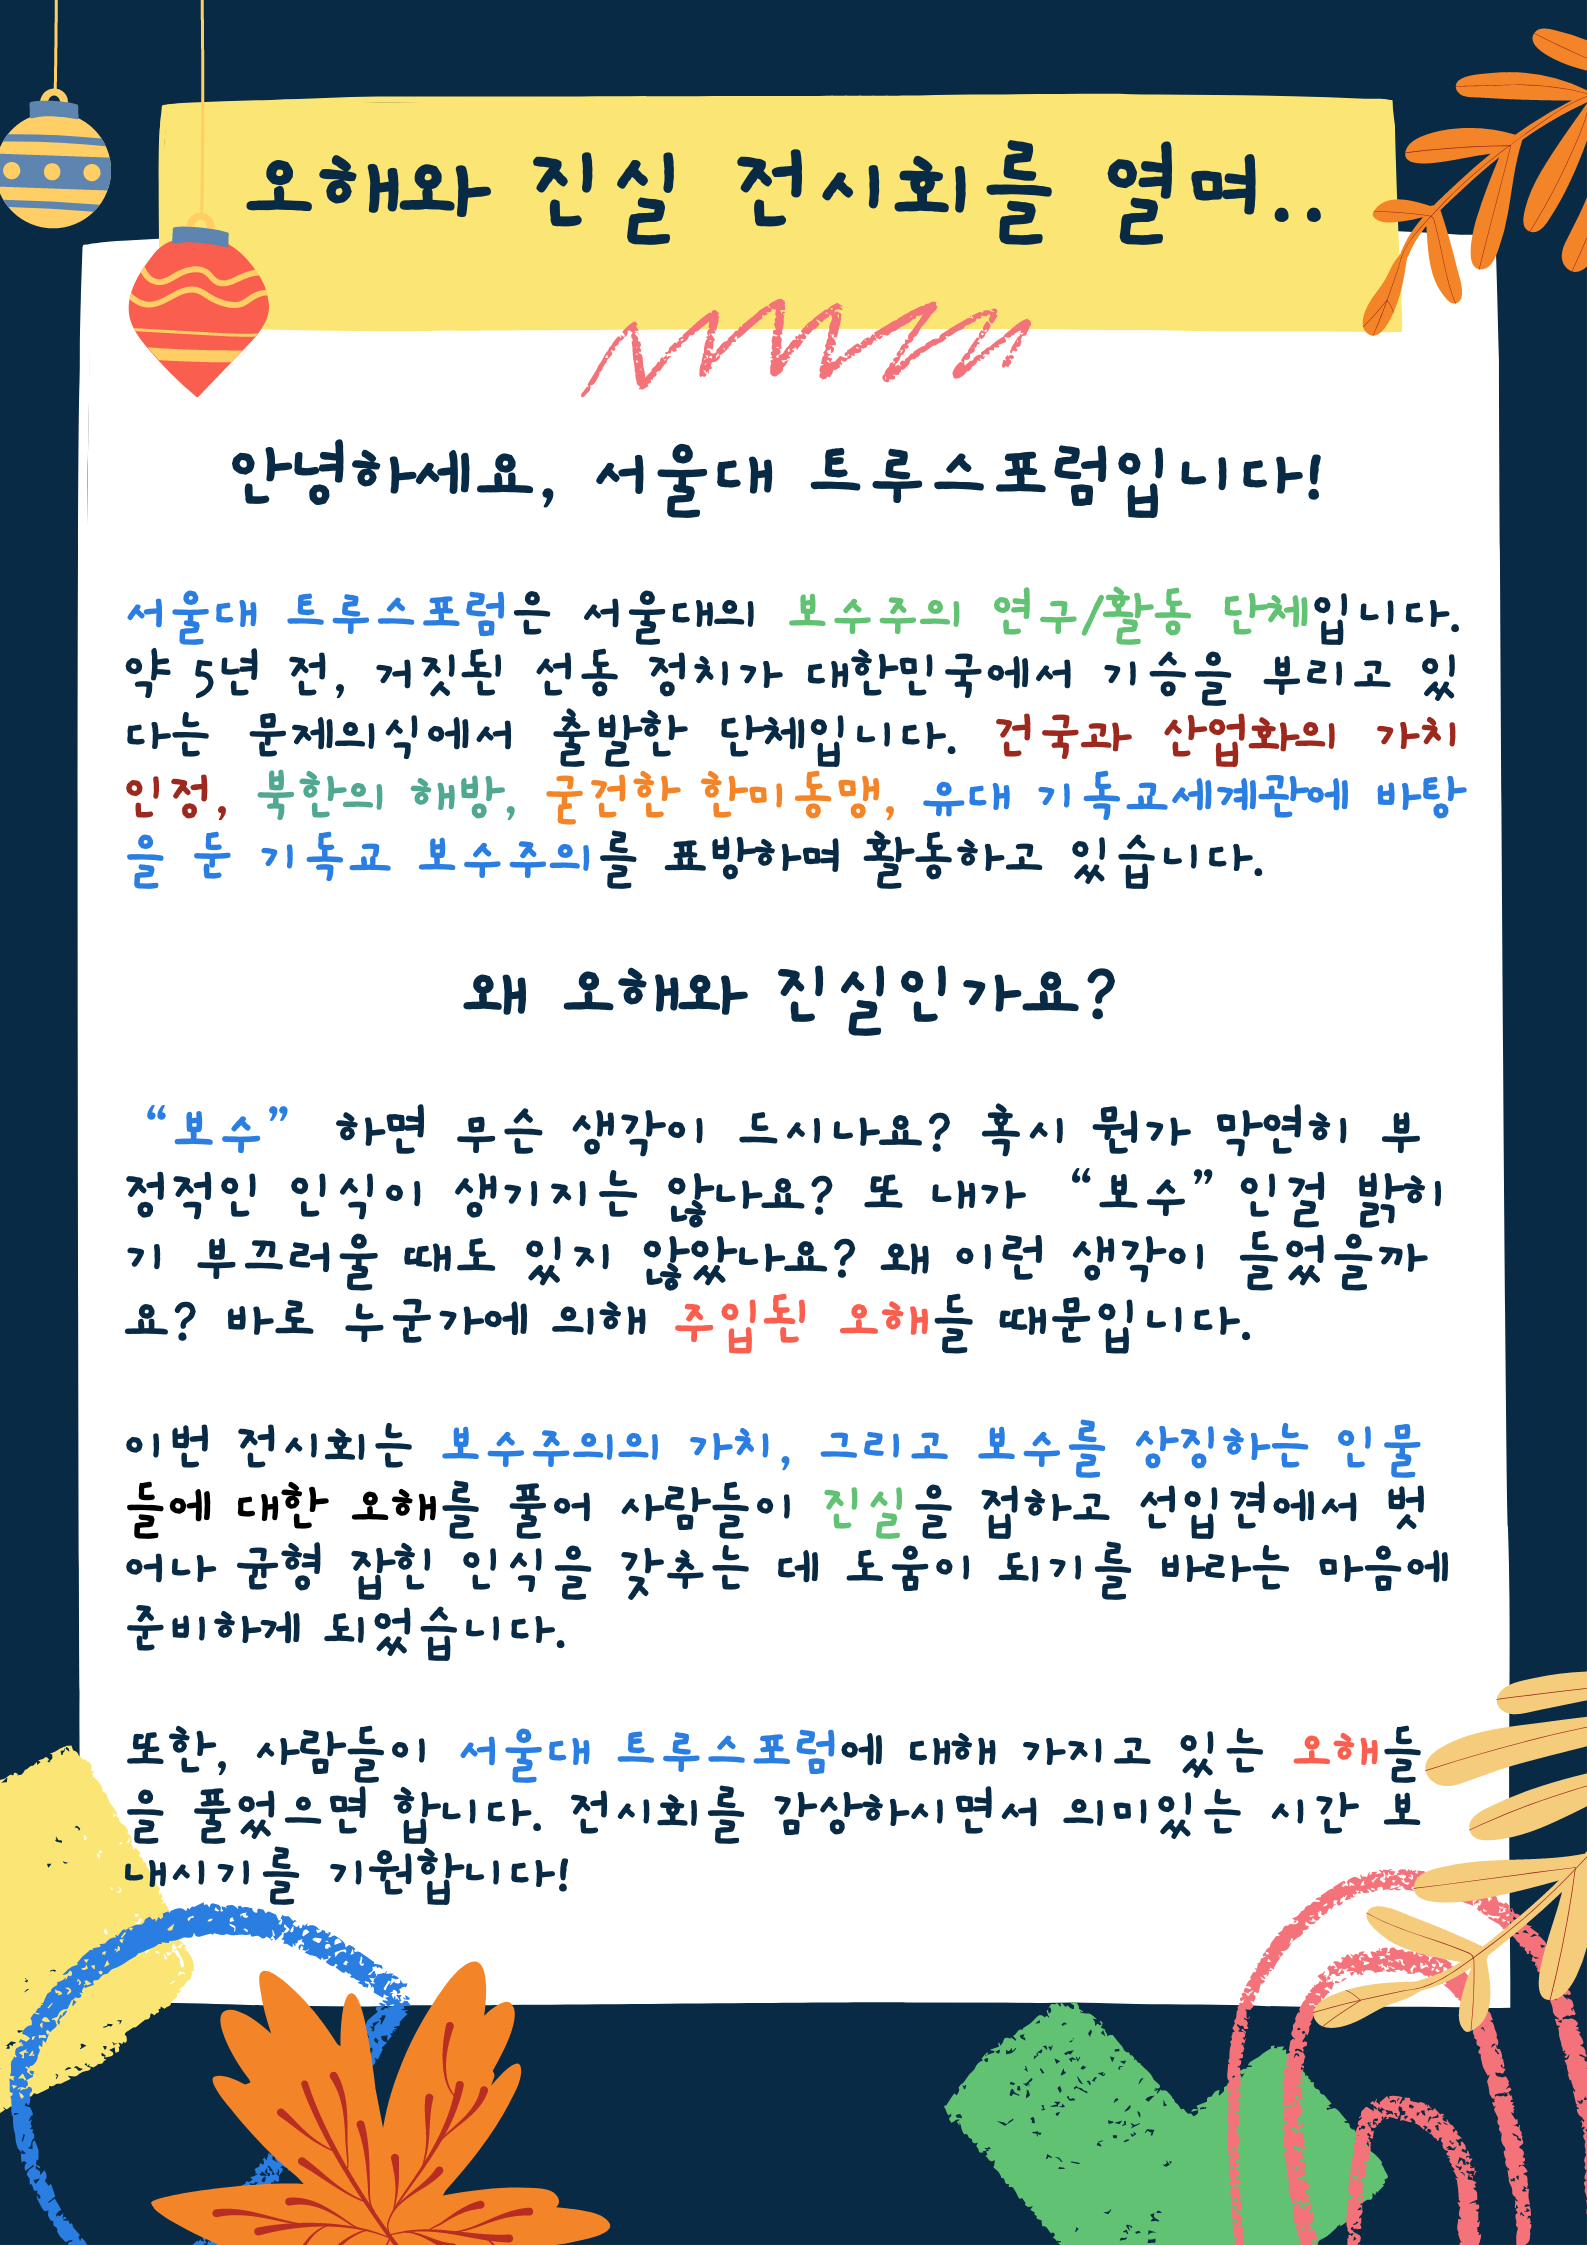 오해와 진실 전시회를 열며..
안녕하세요, 서울대 트루스포럼입니다!
서울대 트루스포럼은 서울대의 보수주의 연구/활동 단체입니다.
약 5년 전, 거짓된 선동 정치가 대한민국에서 기승을 부리고 있
다는 문제의식에서 출발한 단체입니다. 건국과 산업화의 가치
인정, 북한의 해방, 굳건한 한미동맹, 유대 기독교세계관에 바탕
을 둔 기독교 보수주의를 표방하며 활동하고 있습니다.
왜 오해와 진실인가요?
“보수” 하면 무슨 생각이 드시나요? 혹시 뭔가 막연히 부
정적인 인식이 생기지는 않나요? 또 내가 “보수”인걸 밝히
기 부끄러울 때도 있지 않았나요? 왜 이런 생각이 들었을까
요? 바로 누군가에 의해 주입된 오해들 때문입니다.
이번 전시회는 보수주의의 가치, 그리고 보수를 상징하는 인물
들에 대한 오해를 풀어 사람들이 진실을 접하고 선입견에서 벗
어나 균형 잡힌 인식을 갖추는 데 도움이 되기를 바라는 마음에
준비하게 되었습니다.
또한, 사람들이 서울대 트루스포럼에 대해 가지고 있는 오해들
을 풀었으면 합니다. 전시회를 감상하시면서 의미있는 시간 보
내시기를 기원합니다!